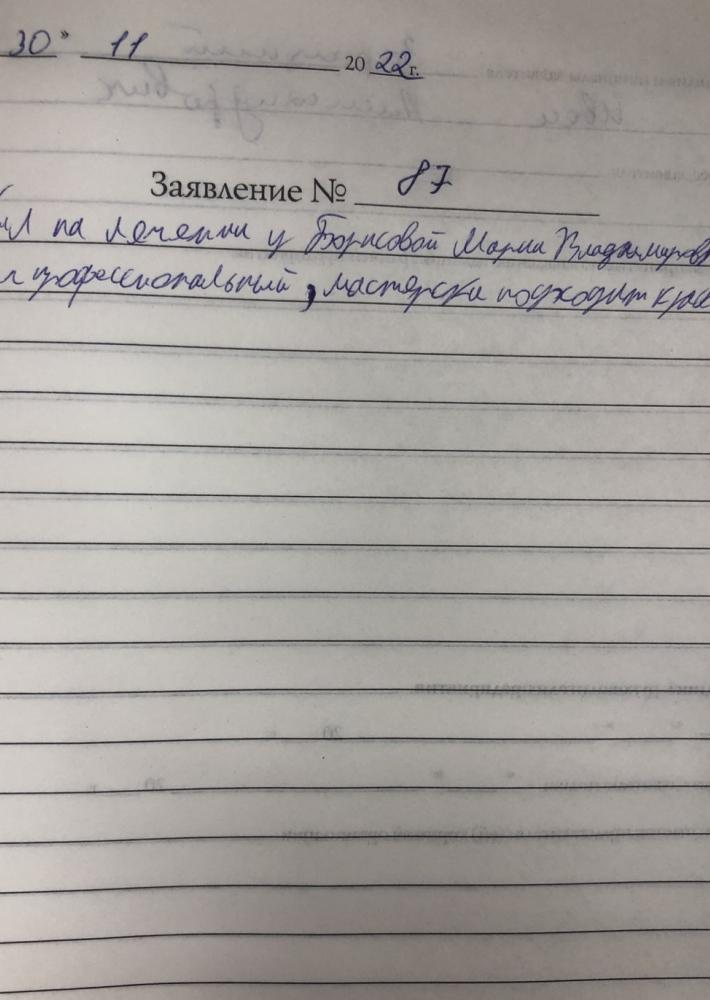 30 » 11 2022 г.
Заявление № 87
на лечении у Борисовой Марии Владимиров
профессиональный, мастерски подходит к